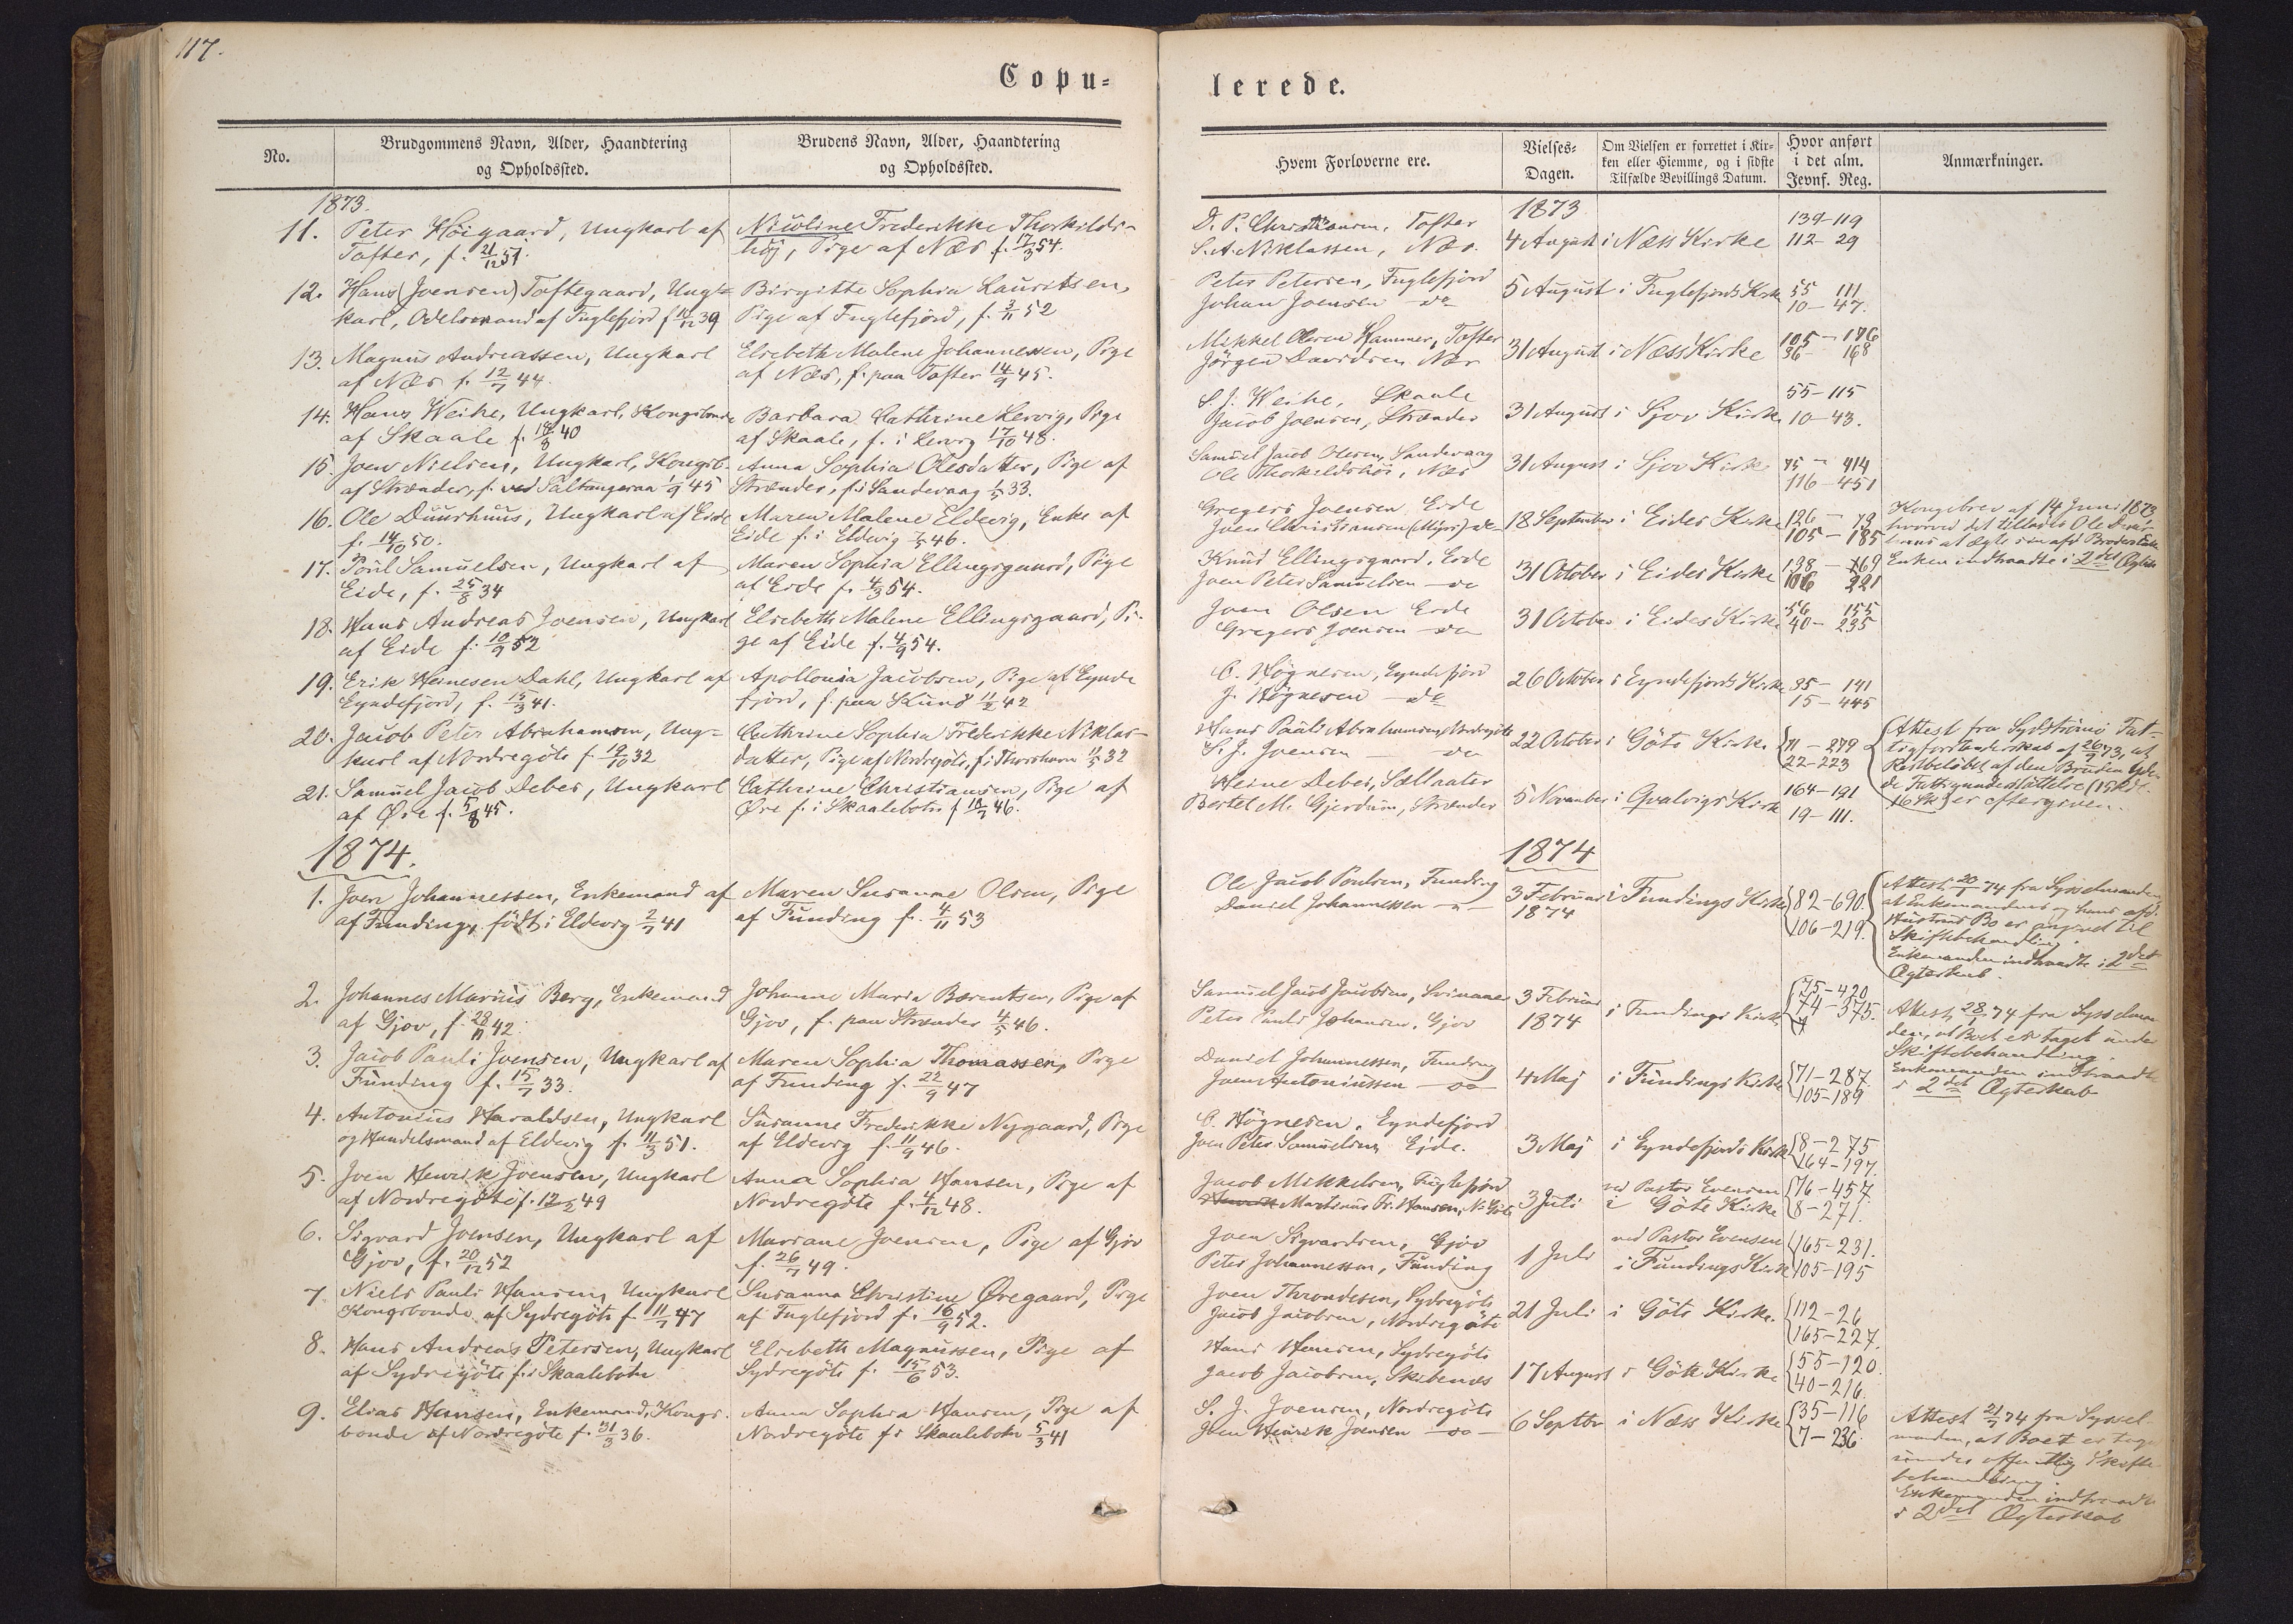 117.
Copu=
lerede.
No.
Brudgommens Navn, Alder, Haandtering
og Opholdssted.
Brudens Navn, Alder, Haandtering
og Opholdssted.
Hvem Forloverne ere.
Vielses-
Dagen.
Om Vielsen er forrettet i Kir-
ken eller Hiemme, og i sidste
Tilfælde Bevillings Datum.
Hvor anført
i det alm.
Jevnf. Reg.
Anmærkninger.
1873.
1873
11. Peter Höigaard, Ungkarl af
Tofter, f. 21/12 51.
Nicoline Frederikke Thorkilds-
höj, Pige af Næs f. 17/3 54.
D. P. Christiansen, Tofter
S. A. Niklassen, Næs.
4 August
i Næss Kirke
139-119
112-29
12. Hans (Joensen) Toftegaard, Ung=
karl, Odelsmand af Fuglefjord f 10/12 39
Birgitte Sophia Lauritsen,
Pige af Fuglefjord, f. 3/11 52
Peter Petersen, Fuglefjord
Johan Joensen do
5 August
i Fuglefjords Kirke
55 111
10-47.
13. Magnus Andreassen, Ungkarl
af Næs f. 12/7 44.
Elsebeth Malene Johannessen, Pige
af Næs, f. paa Tofter 14/9 45.
Mikkel Olesen Hammer, Tofter
Jörgen Davidsen Næs
31 August
i Næss Kirke
105-176
36-168
14. Hans Weihe, Ungkarl, Kongsbonde
af Skaale f. 18/3 40
Barbara Cathrine Lervig, Pige
af Skaale, f. i Lervig 17/10 48.
S. J. Weihe, Skaale
Jacob Joensen, Strænder
31 August
i Gjov Kirke
55-115
10-43.
15. Joen Nielsen, Ungkarl, Kongsb.
af Strænder, f. ved Saltangeraa 1/9 45
Anna Sophia Olesdatter, Pige af
Strænder, f. i Sandevaag 1/5 33.
Samuel Jacob Olesen, Sandevaag
Ole Thorkildshöi, Næs
31 August
i Gjov Kirke
75-414
116-451
16. Ole Duurhuus, Ungkarl af Eide
f. 14/10 50.
Maren Malene Eldevig, Enke af
Eide f. i Eldevig 1/5 46.
Gregers Joensen Eide
Joen Christiansen do
18 September
i Eides Kirke
126-79
105-185
Kongebrev af 14 Juni 1873
hvorved det tillades Ole Duur-
huus at ægte sin afd. Broders Enke
Enken indtraadte i 2det Ægtesk
17. Poul Samuelsen, Ungkarl af
Eide, f. 25/8 34
Maren Sophia Ellingsgaard, Pige
af Eide f. 4/3 54.
Knud Ellingsgaard, Eide
Joen Peter Samuelsen do
31 October
i Eides Kirke
138-169
106 221
18. Hans Andreas Joensen, Ungkarl
af Eide f. 10/9 52
Elsebeth Malene Ellingsgaard, Pi-
ge af Eide f. 4/9 54.
Joen Olsen Eide
Gregers Joensen do
31 October
i Eides Kirke
56 155
40-235
19. Erik Heinesen Dahl, Ungkarl af
Eyndefjord, f. 15/3 41.
Apollonia Jacobsen, Pige af Eynde
fjord, f. paa Kunö 11/2 42
O. Högnesen, Eyndefjord
J. Högnesen do
26 October
i Eyndefjords Kirke
35-141
15-445
20. Jacob Peter Abrahamsen, Ung=
karl af Nordregöte f. 19/10 32
Cathrine Sophia Frederikke Niklas-
datter, Pige af Nordregöte, f. i Thorshavn 11/5 32
Hans Pauli Abrahamsen, Nordregöte
S. J. Joensen do
22 October
i Göte Kirke
71-279
22-223
Attest fra Sydströmö Fat-
tigforstanderskab af 26/9 73, at
Restbeløbet af den Bruden yde-
de Fattigunderstøttelse
16 Sk) er eftergiven.
21. Samuel Jacob Debes, Ungkarl
af Øre f. 5/8 45.
Cathrine Christiansen, Pige af
Øre f. i Skaalebotn f 10/7 46.
Heine Debes, Sællaater
Bertel M. Gjerdum, Strænder
5 November
i Qvalvigs Kirke
164-191
19-111.
1874.
1874
1. Joen Johannessen, Enkemand af
af Funding, födt i Eldevig 2/7 41
Maren Susanne Olsen, Pige
af Funding f. 4/11 53
Ole Jacob Poulsen, Funding
Daniel Johannessen
3 Februar
1874
i Fundings Kirke
82-690.
106-219.
Attest 20/1 74 fra Sysselmanden
at Enkemandens og hans afd.
Hustrus Bo er angivet til
Skiftebehandling.
Enkemanden indtraadte i 2det
Ægteskab.
2. Johannes Marius Berg, Enkemand
af Gjov, f. 28/11 42.
Johanne Maria Bærentsen, Pige af
Gjov, f. paa Strænder 4/5 46.
Samuel Jacob Jacobsen, Svinaae
Peter Pauli Johansen, Gjov
3 Februar
1874
i Fundings Kirke
75-420
74-375.
Attest 28/1 74 fra Sysselman
den, at Boet er taget under
Skiftebehandling.
Enkemanden indtraadte
i 2det Ægteskab
3. Jacob Pauli Joensen, Ungkarl af
Funding f. 15/7 33.
Maren Sophia Thomassen, Pige
af Funding f. 22/9 47
Daniel Johannessen, Funding
Joen Antoniussen do
4 Maj
i Fundings Kirke
71-287.
105-189
4. Antonius Haraldsen, Ungkarl
og Handelsmand af Eldevig f. 11/3 51.
Susanne Frederikke Nygaard, Pige
af Eldevig f. 11/9 46.
O. Högnesen, Eyndefjord
Joen Peter Samuelsen, Eide.
3 Maj
i Eyndefjords Kirke
8-275
164-197.
5. Joen Henrik Joensen, Ungkarl
af Nordregöte f. 12/2 49
Anna Sophia Hansen, Pige af
Nordregöte f. 4/12 48.
Jacob Mikkelsen, Fuglefjord
Martinus Fr. Hansen, N. Göte
3 Juli
ved Pastor Evensen
i Göte Kirke
76-457
8-271.
6. Sigvard Joensen, Ungkarl af
Gjov, f. 20/12 52
Mariane Joensen, Pige af Gjov
f. 26/7 49.
Joen Sigvardsen, Gjov
Peter Johannessen, Funding
1 Juli
ved Pastor Evensen
i Fundings Kirke
165-231.
105-195
7. Niels Pauli Hansen, Ungkarl
Kongsbonde af Sydregöte f 11/7 47
Susanna Christine Øregaard, Pige
af Fuglefjord f. 16/9 52.
Joen Throndesen, Sydregöte
Jacob Jacobsen, Nordregöte
21 Juli
i Göte Kirke.
112-26
165-227.
8. Hans Andreas Petersen, Ungkarl
af Sydregöte f. i Skaalebotn
Elsebeth Magnussen, Pige af
Sydregöte f. 15/6 53.
Hans Hansen, Sydregöte
Jacob Jacobsen, Skibenæs
17 August
i Göte Kirke
55-120.
40-216.
9. Elias Hansen, Enkemand, Kongs-
bonde af Nordregöte f. 31/3 36.
Anna Sophia Hansen, Pige af
Nordregöte f. i Skaalebotn 5/3 41
S. J. Joensen, Nordregöte
Joen Henrik Joensen do
6 Septbr
i Næss Kirke
35-116
7-236
Attest 21/7 74 fra Syssel-
manden, at Boet er tage
under offentlig Skifte
behandling.
Enkemanden indtraadte
i 2det Ægteskab